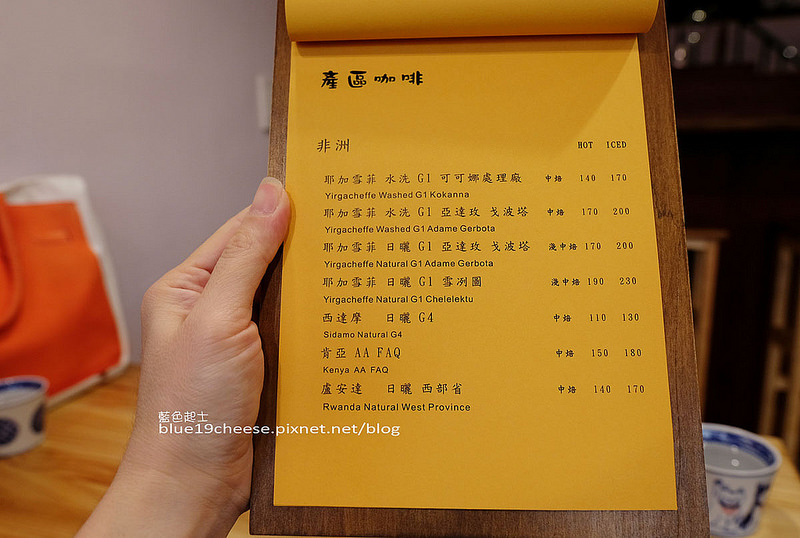 產區咖啡
非洲 HOT ICED
耶加雪菲 水洗 G1 可可娜處理廠 中焙 140 170
Yirgacheffe Washed G1 Kokanna
耶加雪菲 水洗 G1 亞達玫 戈波塔 中焙 170 200
Yirgacheffe Washed G1 Adame Gerbota
耶加雪菲 日曬 G1 亞達玫 戈波塔 淺中焙 170 200
Yirgacheffe Natural G1 Adame Gerbota
耶加雪菲 日曬 G1 雪冽圖 淺中焙 190 230
Yirgacheffe Natural G1 Chelelektu
西達摩 日曬 G4 中焙 110 130
Sidamo Natural G4
肯亞 AA FAQ 中焙 150 180
Kenya AA FAQ
盧安達 日曬 西部省 中焙 140 170
Rwanda Natural West Province
藍色起士
blue19cheese.pixnet.net/blog